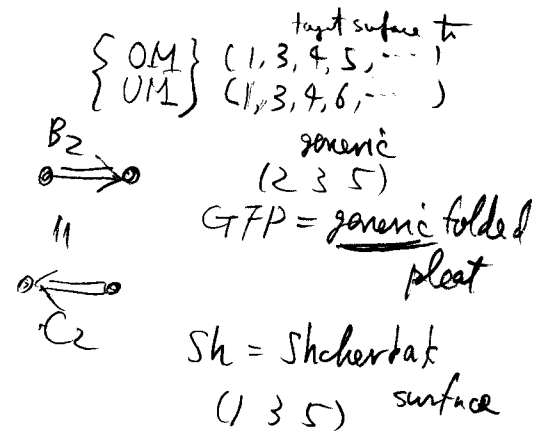 target surface
{ OM } (1, 3, 4, 5, ⋯ )
{ UM } (1, 3, 4, 6, ⋯ )
B₂
generic
(2 3 5)
GFP = generic folded
pleat
C₂
Sh = Shcherbak
surface
(1 3 5)